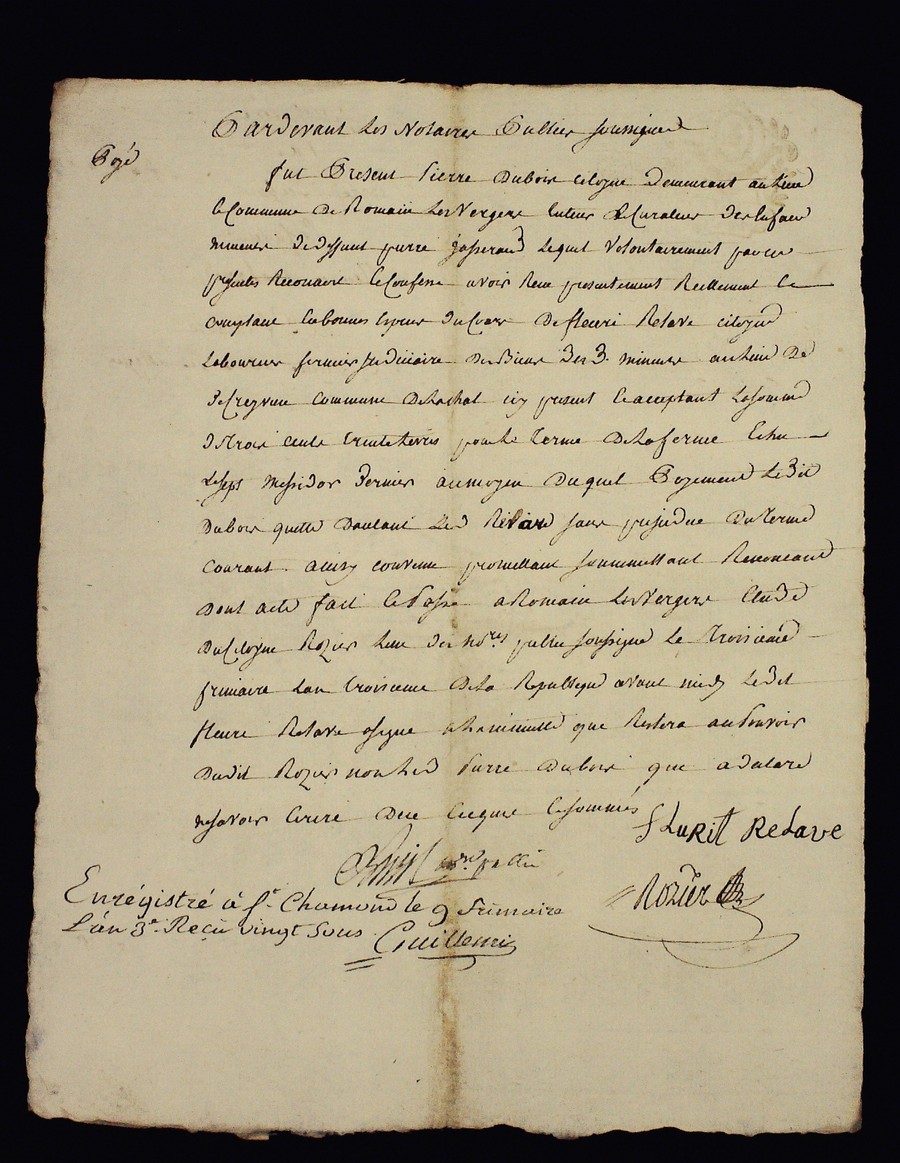 Pardevant Les Notaires Publics soussignés
Payé
fut Present Pierre Dubois citoyen demeurant au lieu
& Commune de Romain Les Vergers tuteur & Curateur des Enfans
mineurs de deffunt pierre Josserand Lequel Volontairement par ces
presentes Reconnoit & Confesse avoir Recu presentement Reellement &
comptant en bonnes Especes du Cours De fleuri Relave citoyen
Laboureur fermier judiciaire Des Biens Des d. mineurs au lieu De
commune De Lachal icy present & acceptant La somme
De trois cents trente Livres pour Le Terme De La ferme Echu
Le sept Messidor Dernier au moyen Duquel Payement Le dit
Dubois quitte D'autant Led Relave sans prejudice Du Terme
Courant. ainsy convenu promettant soummettant Renonceant
Dont acte fait & Passé a Romain Les Vergers Etude
Du Citoyen Rozier L'un des no.res publics soussigné Le Troisieme
frimaire L'an troisieme De La Republique avant midy Le dit
fleuri Relave a signé a La minutte que Restera au Pouvoir
Dudit Rozier non Led Pierre Dubois que a declaré
ne savoir Ecrire De ce Enquis & sommés
fLuRit ReLave
no.re public
Rozier
Enrégistré à St. Chamond le 9 frimaire
L'an 3e. Reçu vingt Sous.
Guillemin